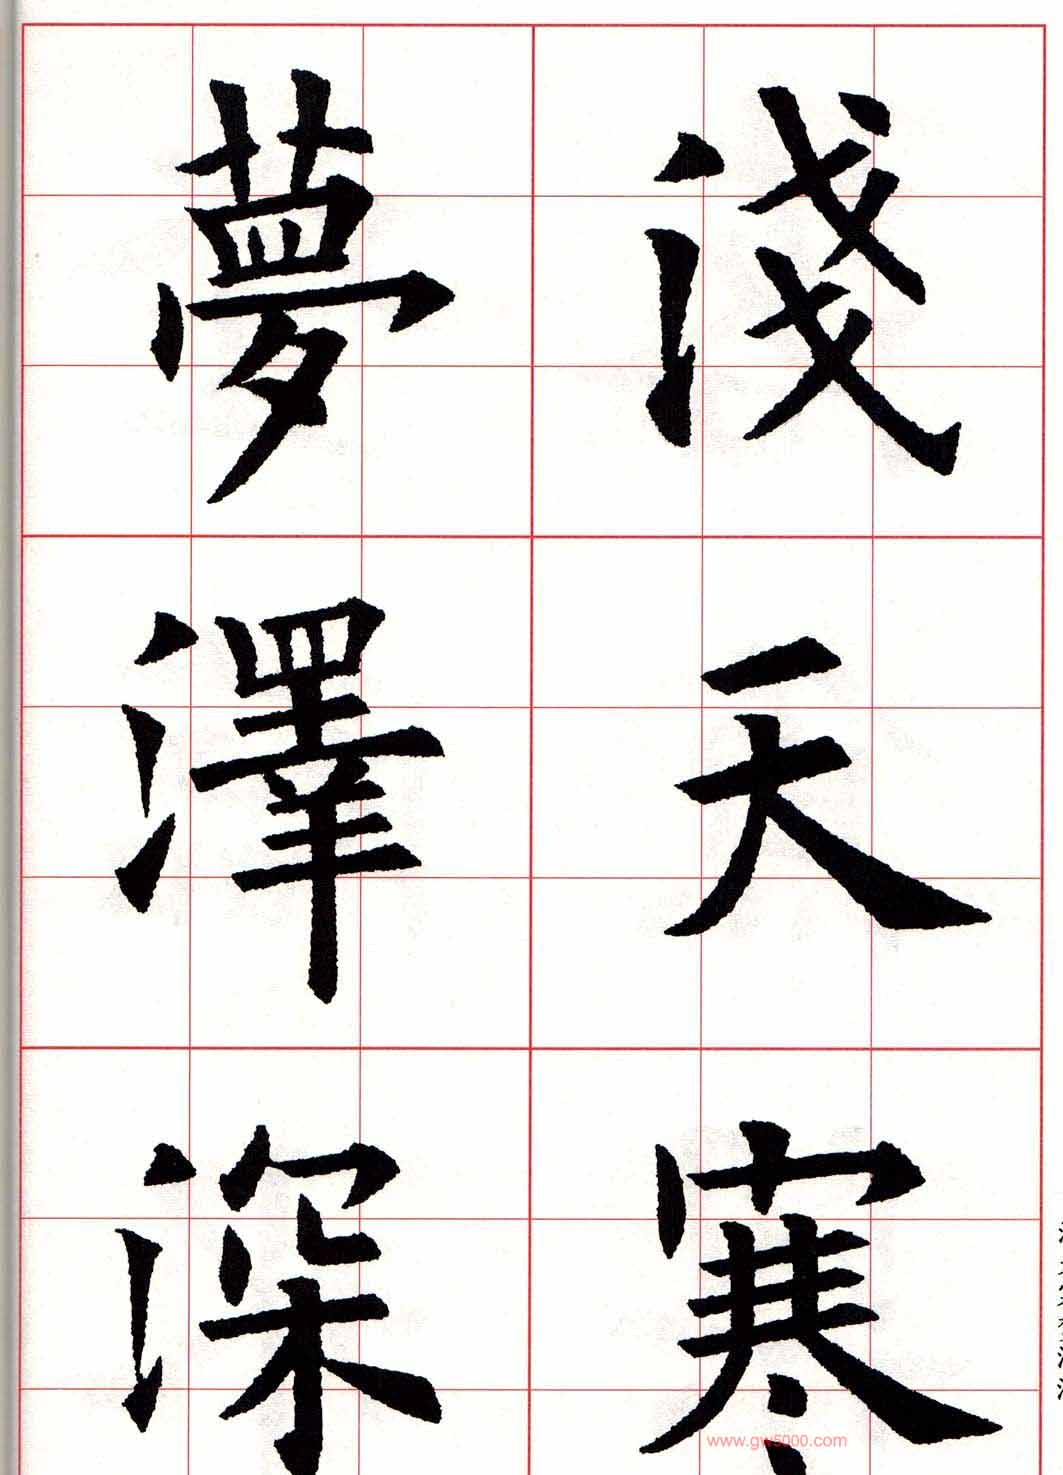 淺天寒
夢澤深
www.gw5000.com